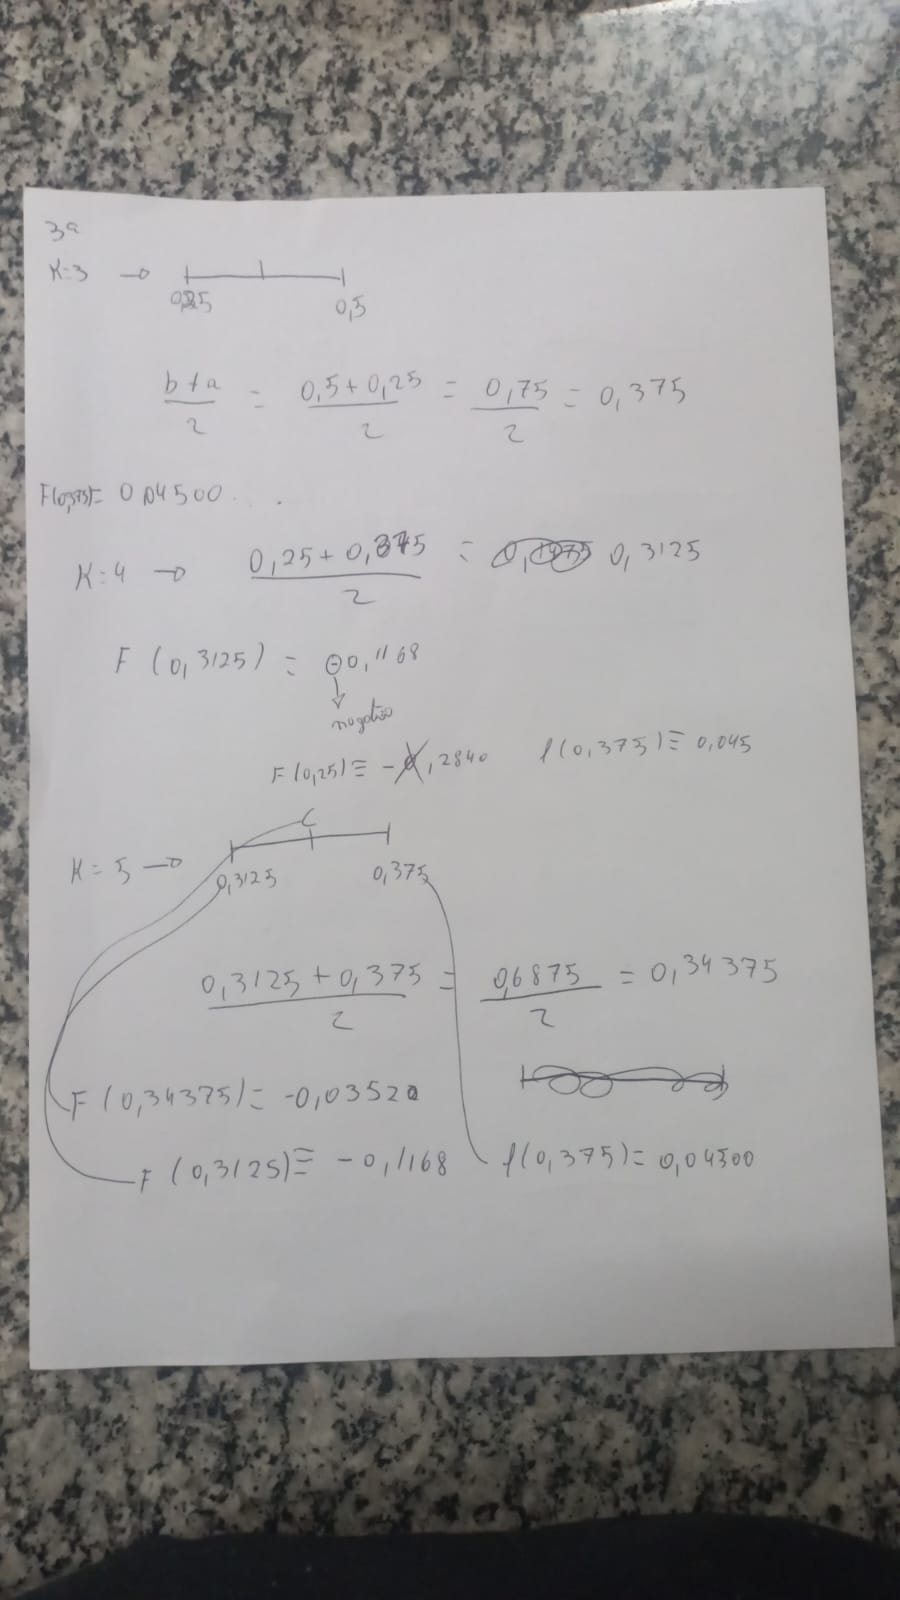 3ª
K=3 → 0,25 0,5
b+a/2 = 0,5+0,25/2 = 0,75/2 = 0,375
F(0,375)= 0,04500...
K=4 → 0,25+0,375/2 = 0,3125
F(0,3125) = -0,1168
negativo
F(0,25)≡ - ,2840 f(0,375)≡ 0,045
K=5 → 0,3125 C 0,375
0,3125+0,375/2 = 0,6875/2 = 0,34375
F(0,34375)= -0,03520
F(0,3125)≡ -0,1168 f(0,375)= 0,04500